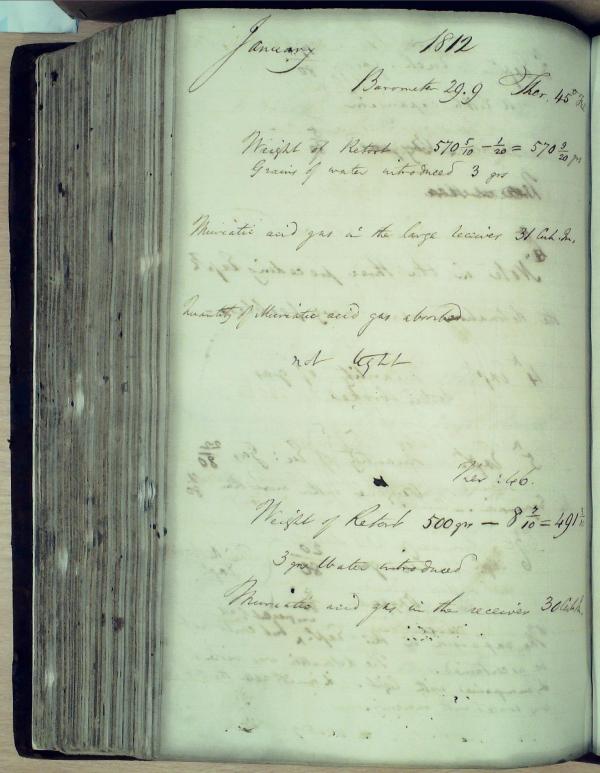 January 1812
Barometer 29.9 Ther. 45°
Weight of Retort 570 5/10 - 1/20 = 570 9/20 grs
Grains of water introduced 3 grs
Muriatic acid gas in the large receiver 31 Cub. In.
Quantity of Muriatic acid gas absorbed
not tight
Ther: 46.
Weight of Retort 500 grs - 8 9/10 = 491 1/10
3 grs Water introduced
Muriatic acid gas in the receiver 30 Cub. In.